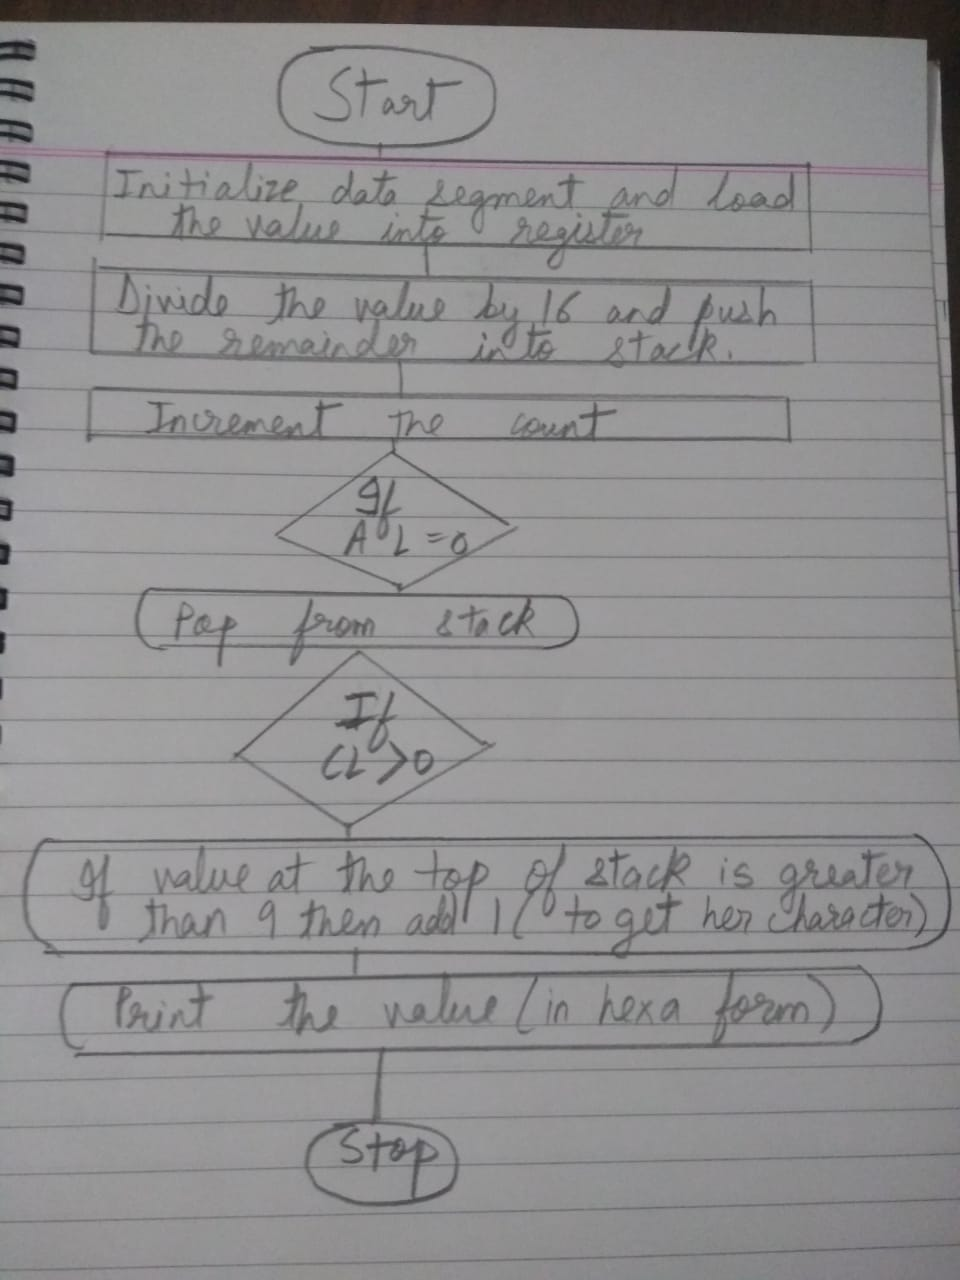 Start
Initialize data segment and load
the value into register
Divide the value by 16 and push
the remainder into stack.
Increment the count
If
AL = 0
Pop from stack
If
CL > 0
If value at the top of stack is greater
than 9 then add 1 ( to get hex character)
Print the value (in hexa form)
Stop